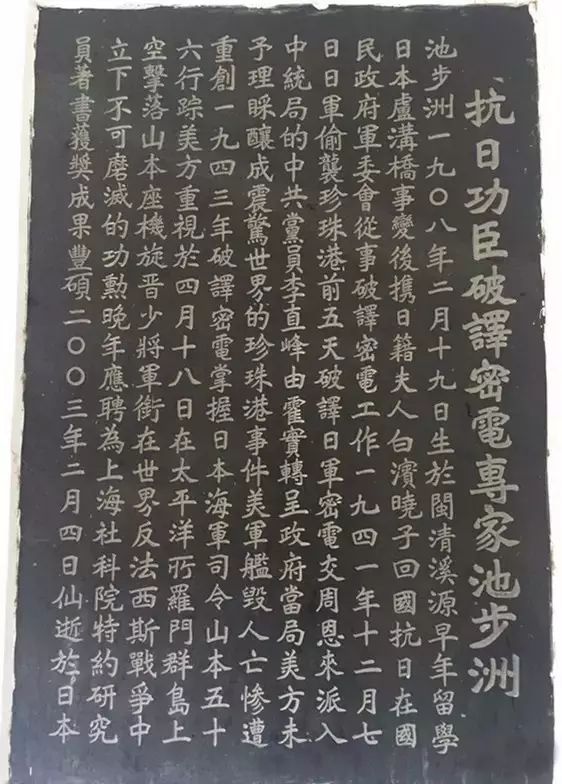 抗日功臣破譯密電專家池步洲
池步洲一九〇八年二月十九日生於閩清溪源早年留學
日本盧溝橋事變後携日籍夫人白濱曉子回國抗日在國
民政府軍委會從事破譯密電工作一九四一年十二月七
日日軍偷襲珍珠港前五天破譯日軍密電交周恩來派入
中統局的中共黨員李直峰由霍實轉呈政府當局美方未
予理睬釀成震驚世界的珍珠港事件美軍艦毀人亡慘遭
重創一九四三年破譯密電掌握日本海軍司令山本五十
六行踪美方重視於四月十八日在太平洋所羅門群島上
空擊落山本座機旋晋少將軍銜在世界反法西斯戰爭中
立下不可磨滅的功勳晚年應聘為上海社科院特約研究
員著書獲獎成果豐碩二〇〇三年二月四日仙逝於日本